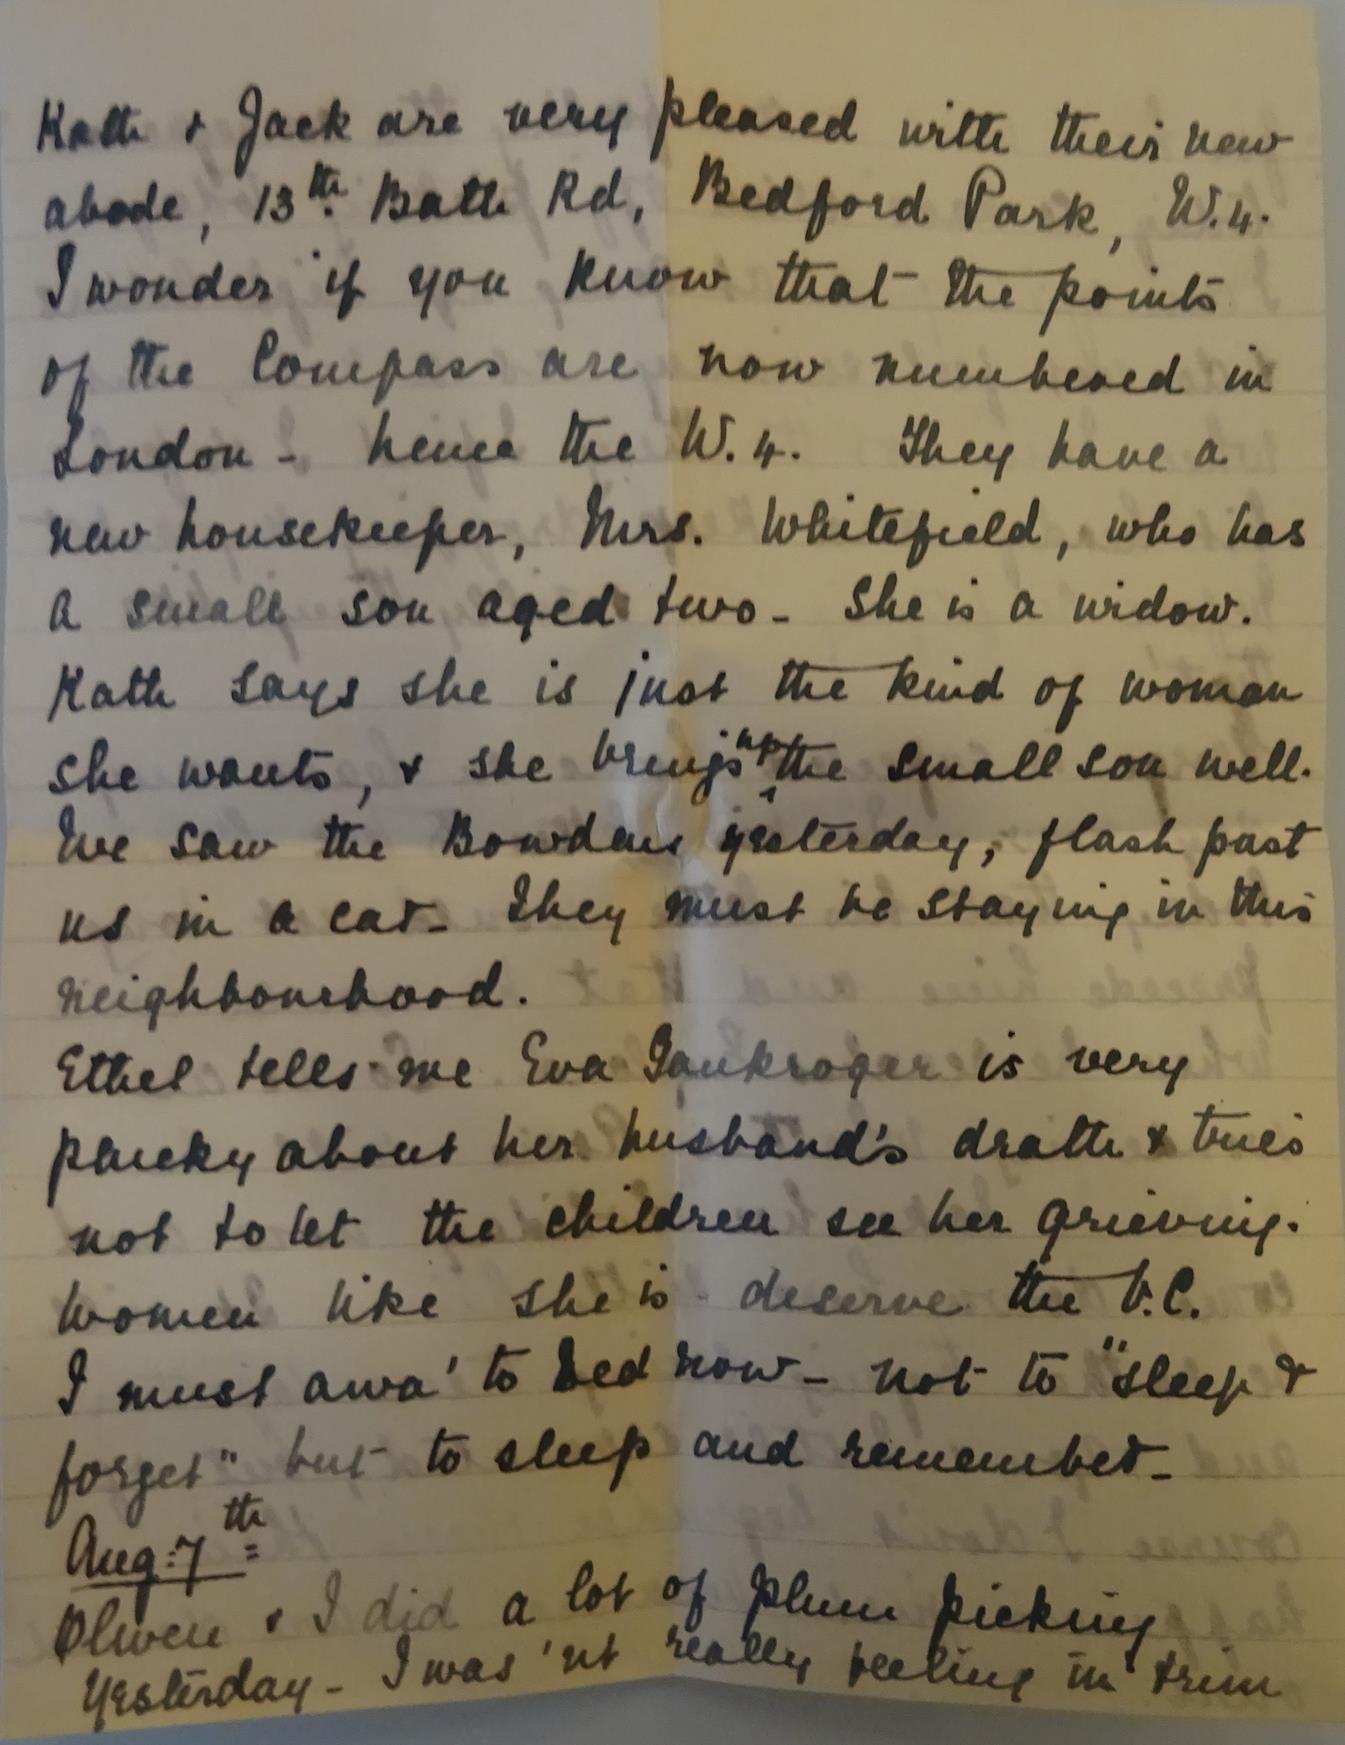 Kath & Jack are very pleased with their new
abode, 13th Bath Rd, Bedford Park, W.4.
I wonder if you know that the points
of the Compass are now numbered in
London - hence the W.4. They have a
new housekeeper, Mrs. Whitefield, who has
a small son aged two - She is a widow.
Kath says she is just the kind of woman
she wants, & she brings up the small son well.
We saw the Bowdens yesterday, flash past
us in a car - They must be staying in this
neighbourhood.
Ethel tells me Eva Gaukroger is very
plucky about her husband's death & tries
not to let the children see her grieving.
Women like she is deserve the V.C.
I must awa' to bed now - not to "sleep &
forget" but to sleep and remember -
Aug: 7th
Olwen & I did a lot of plum picking
yesterday - I was'nt really feeling in trim